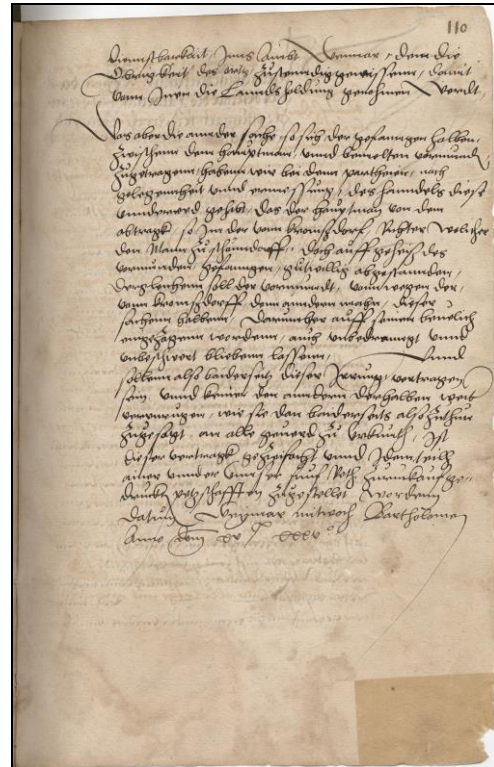 110
dienstbarkait, Inns Ambt Weymar, denn die
Obrigkeit des orts zustendig gewissenn, damit
vonn Inen die Lanndsholdung genohmen werdt,
Was aber die annder sache, so sich der gefanngen halben,
Zwischenn dem hauptman, vnnd bemelten vormund
Zugetragenn, habenn wir bei denn partheien, nach
gelegennheit vnnd ermessung, des hanndels diese
vnnderred gehabt, das der hauptman von dem
abtragk, so Im der vom kromsdorf, Richter welcher
den Mann zu, doch auff geheis des
vormunden, gefanngen, guttwillig abgestannden,
Dergleichenn soll der vormundt, vonn wegen der,
vonn kromsdorff dem anndern mahn, dieser
sachenn halbenn, Darumber auff seinen
eingezogenn wordenn, auch vnbedrenngt vnnd
vnbeschwert bleibenn lassenn, Vnnd
sollenn also baiderseits dieser Irrung, vertragen
sein, vnnd keiner den anndern derhalben weit
, wie sie dan baiderseits also zuthun
zugesagt, an alle geuerd zu vrkundt, Ist
dieser vertragk gezweifacht vnnd Idem teill
ainer vnnder vnnser hieruf
druckten petzschafften zugestellet wordenn
Datum Weymar mitwoch Bartholomei
Anno domini xv^c xxxv